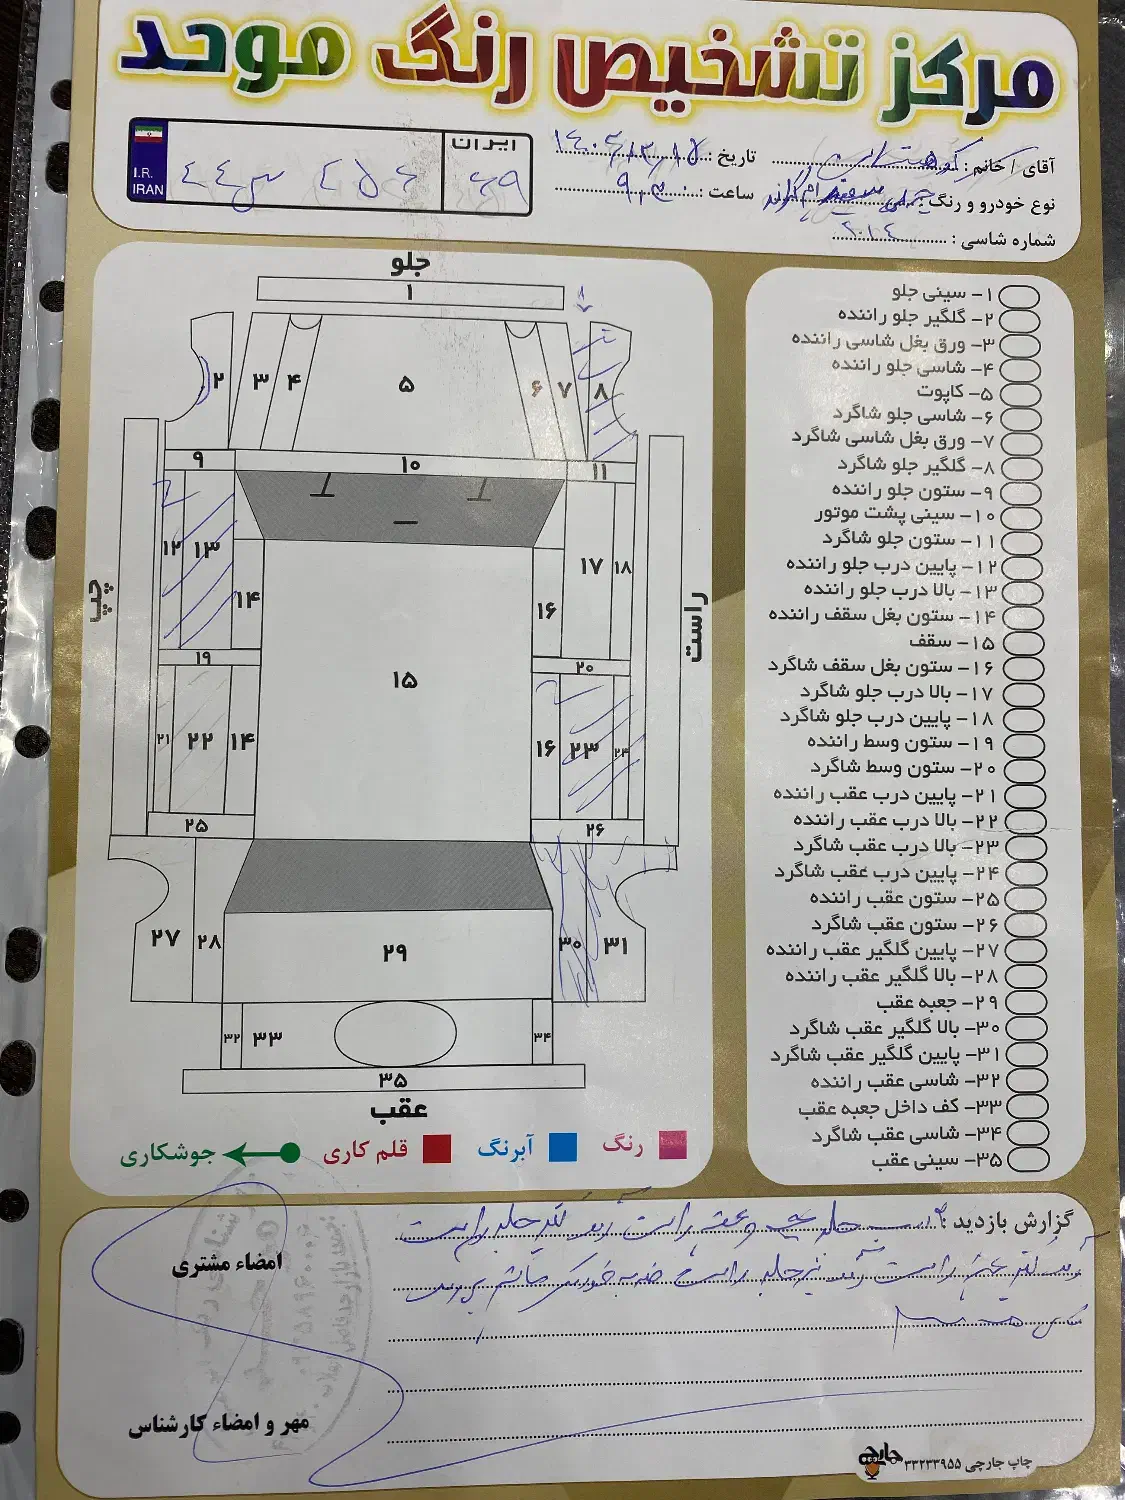 مرکز تشخیص رنگ موحد
آقای / خانم :
تاریخ :
نوع خودرو و رنگ :
ساعت : ۹,۳۰
شماره شاسی :
I.R.
IRAN
ایران
۶۹
جلو
۱
۲
۳
۴
۵
۶
۷
۸
۹
۱۰
۱۱
۱۲
۱۳
۱۴
۱۵
۱۶
۱۷
۱۸
۱۹
۲۰
۲۱
۲۲
۱۴
۱۶
۲۳
۲۴
۲۵
۲۶
۲۷
۲۸
۲۹
۳۰
۳۱
۳۲
۳۳
۳۴
۳۵
چپ
راست
عقب
رنگ
آبرنگ
قلم کاری
جوشکاری
۱- سینی جلو
۲- گلگیر جلو راننده
۳- ورق بغل شاسی راننده
۴- شاسی جلو راننده
۵- کاپوت
۶- شاسی جلو شاگرد
۷- ورق بغل شاسی شاگرد
۸- گلگیر جلو شاگرد
۹- ستون جلو راننده
۱۰- سینی پشت موتور
۱۱- ستون جلو شاگرد
۱۲- پایین درب جلو راننده
۱۳- بالا درب جلو راننده
۱۴- ستون بغل سقف راننده
۱۵- سقف
۱۶- ستون بغل سقف شاگرد
۱۷- بالا درب جلو شاگرد
۱۸- پایین درب جلو شاگرد
۱۹- ستون وسط راننده
۲۰- ستون وسط شاگرد
۲۱- پایین درب عقب راننده
۲۲- بالا درب عقب راننده
۲۳- بالا درب عقب شاگرد
۲۴- پایین درب عقب شاگرد
۲۵- ستون عقب راننده
۲۶- ستون عقب شاگرد
۲۷- پایین گلگیر عقب راننده
۲۸- بالا گلگیر عقب راننده
۲۹- جعبه عقب
۳۰- بالا گلگیر عقب شاگرد
۳۱- پایین گلگیر عقب شاگرد
۳۲- شاسی عقب راننده
۳۳- کف داخل جعبه عقب
۳۴- شاسی عقب شاگرد
۳۵- سینی عقب
گزارش بازدید :
امضاء مشتری
مهر و امضاء کارشناس
چاپ جارچی ۳۳۲۳۳۹۵۵
جارچی